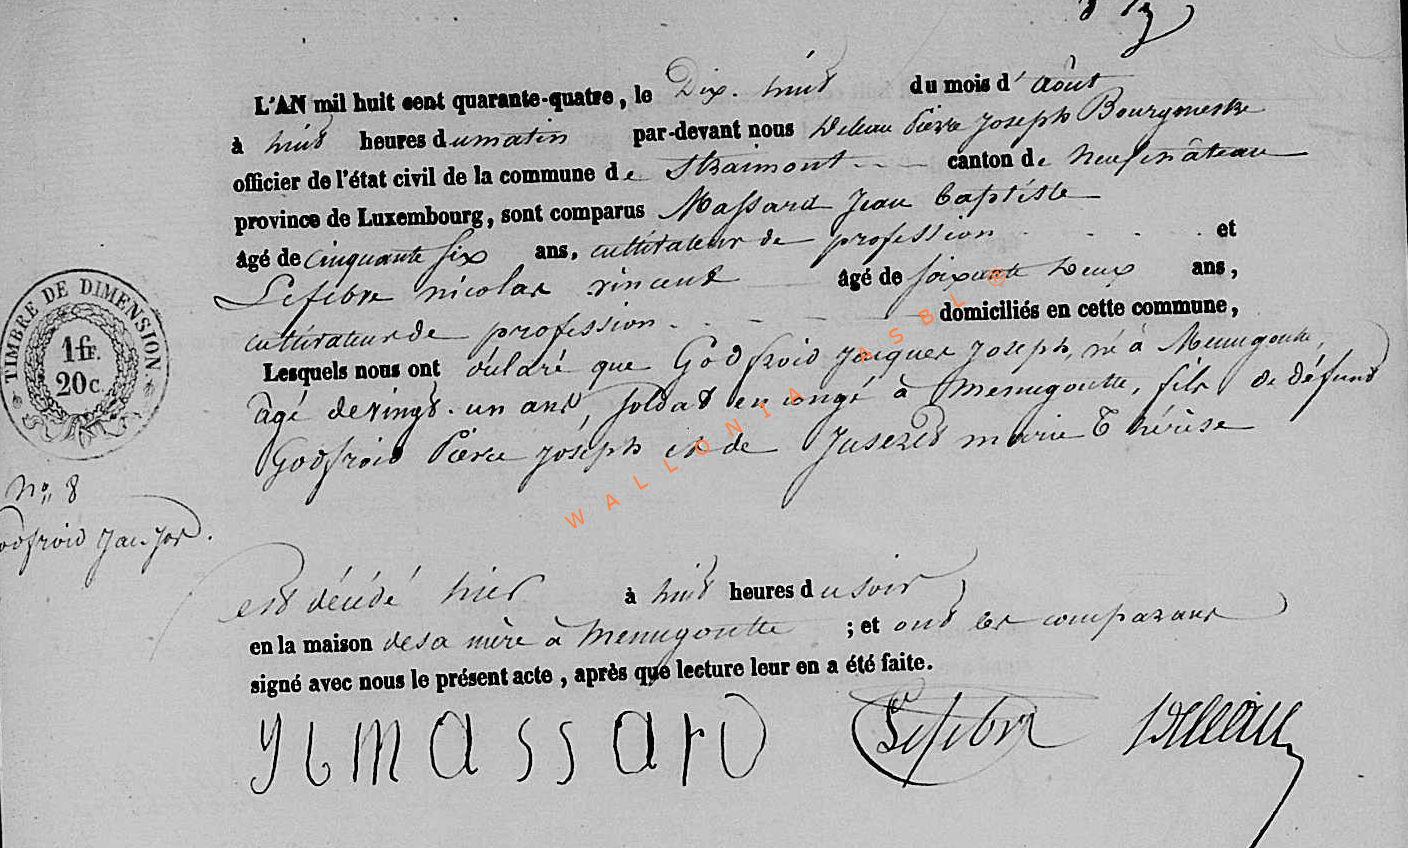 L'AN mil huit cent quarante-quatre, le Dix-huit du mois d'août
à huit heures du matin par-devant nous Deleau Pierre Joseph Bourgmestre
officier de l'état civil de la commune de Straimont canton de Neufchâteau
province de Luxembourg, sont comparus Massard Jean Baptiste
âgé de cinquante six ans, cultivateur de profession et
Lefebre Nicolas vincent âgé de soixante Deux ans,
cultivateur de profession domiciliés en cette commune,
Lesquels nous ont déclaré que Godfroid Jacques Joseph, né à Menugoutte,
âgé de vingt-un ans, soldat en congé à menugoutte, fils de défunt
Godfroid Pierre joseph et de marie Thérèse
TIMBRE DE DIMENSION
1 fr.
20 c.
No. 8
Godfroid Jac. Jos.
est décédé hier à huit heures du soir
en la maison de sa mère à menugoutte ; et ont les comparans
signé avec nous le présent acte, après que lecture leur en a été faite.
massard Lefebvre Deleau
WALLONIA ASBL ©